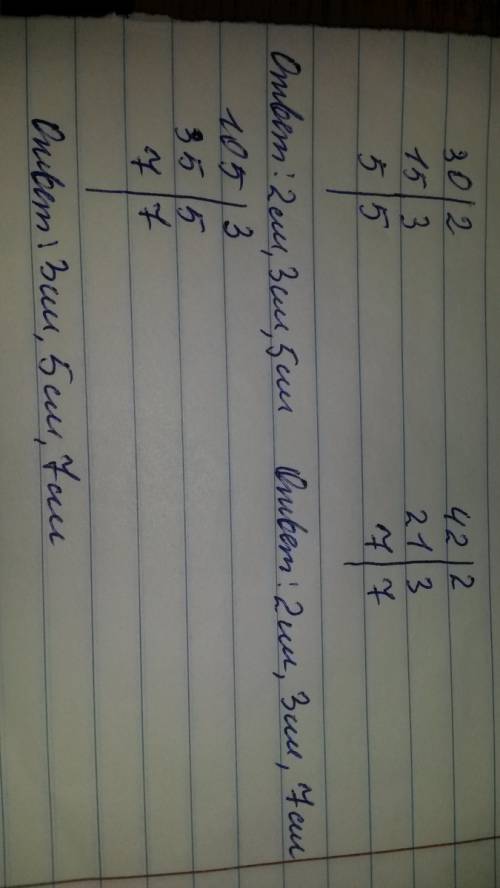 30 | 2 42 | 2
15 | 3 21 | 3
5 | 5 7 | 7
Ответ: 2см, 3см, 5см Ответ: 2см, 3см, 7см
105 | 3
35 | 5
7 | 7
Ответ: 3см, 5см, 7см